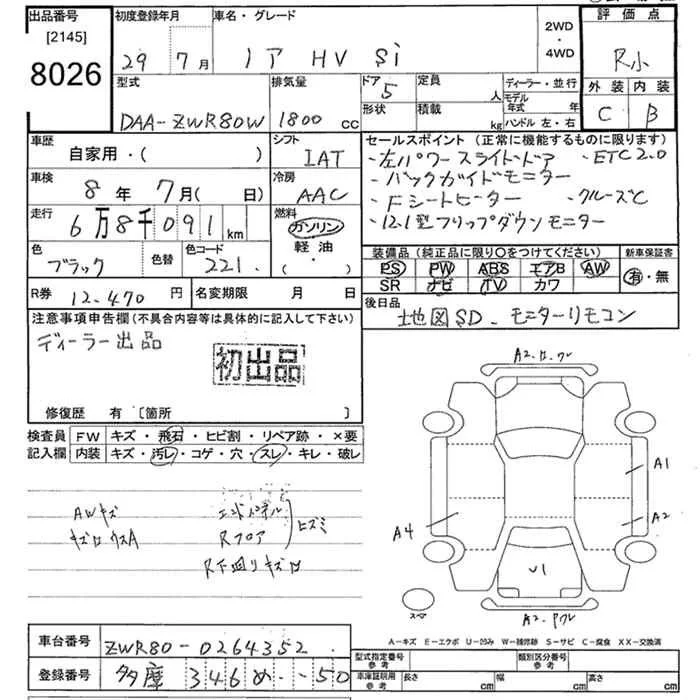 出品番号 初度登録年月 車名・グレード 2WD・4WD 評価点
[2145]
8026
29年 7月 ノア HV Si R小
型式 排気量 ドア 5 定員 人 ディーラー・並行 外装 内装
DAA-ZWR80W 1800cc 形状 積載 kg モデル年式 年 ハンドル 左・右 C B
車歴 自家用・( ) シフト IAT
セールスポイント(正常に機能するものに限ります)
・左パワースライドドア ・ETC2.0
・バックガイドモニター
・Fシートヒーター ・クルーズC
・12.1型フリップダウンモニター
車検 8年 7月( 日) 冷房 AAC
走行 6万8千091km 燃料 ガソリン 軽油・( ・ )
色 ブラック 色替 色コード 221.
装備品(純正品に限り○をつけてください) 新車保証書
PS PW ABS エアB AW 有・無
SR ナビ TV カワ
R券 12-470円 名変期限 月 日
後日品 地図SD. モニターリモコン
注意事項申告欄(不具合内容等は具体的に記入して下さい)
ディーラー出品
初出品
修復歴 有 [箇所 ]
検査員記入欄 FW キズ・飛石・ヒビ割・リペア跡・×要
内装 キズ・汚レ・コゲ・穴・スレ・キレ・破レ
AWキズ エンドパネル
キズ A Rフロア ヒズミ
R下廻りキズ
A2
A1
A4 A2
U1
スペア
A2
A-キズ E-エクボ U-凹み W-補修跡 S-サビ C-腐食 XX-交換済
車台番号 ZWR80-0264352
型式指定番号 参考 類別区分番号 参考
登録番号 多摩 346 め --50
車庫証明用 参考 長さ cm 幅 cm 高さ cm